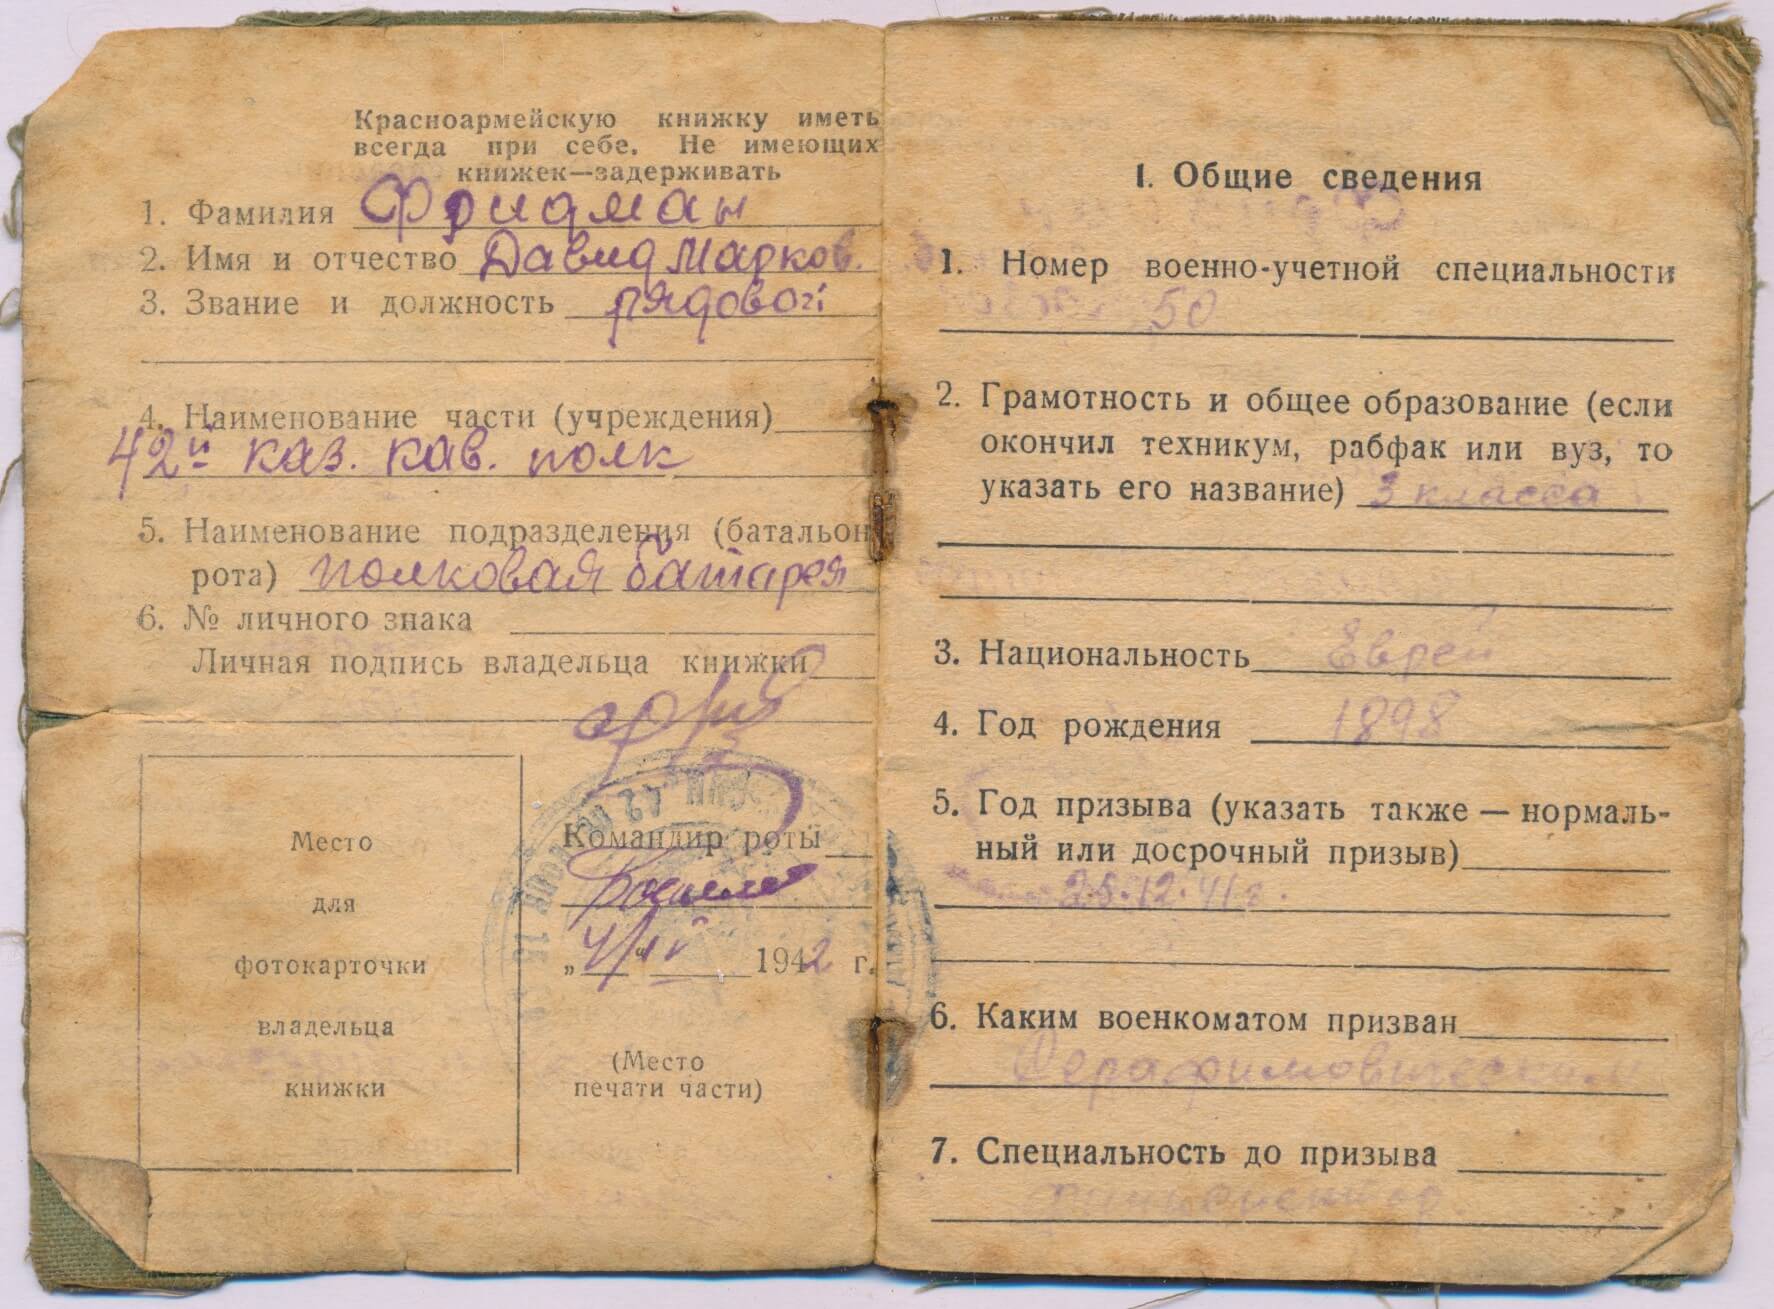 Красноармейскую книжку иметь
всегда при себе. Не имеющих
книжек—задерживать
1. Фамилия Фридман
2. Имя и отчество Давид Марков.
3. Звание и должность рядовой
4. Наименование части (учреждения)
42й каз. кав. полк
5. Наименование подразделения (батальон
рота) полковая батарея
6. № личного знака
Личная подпись владельца книжки
Место
для
фотокарточки
владельца
книжки
Командир роты
„ “ 1942 г.
(Место
печати части)
I. Общие сведения
1. Номер военно-учетной специальности
50
2. Грамотность и общее образование (если
окончил техникум, рабфак или вуз, то
указать его название) 3 класса
3. Национальность Еврей
4. Год рождения 1898
5. Год призыва (указать также — нормаль-
ный или досрочный призыв)
25.12.41г.
6. Каким военкоматом призван
Серафимовическим
7. Специальность до призыва